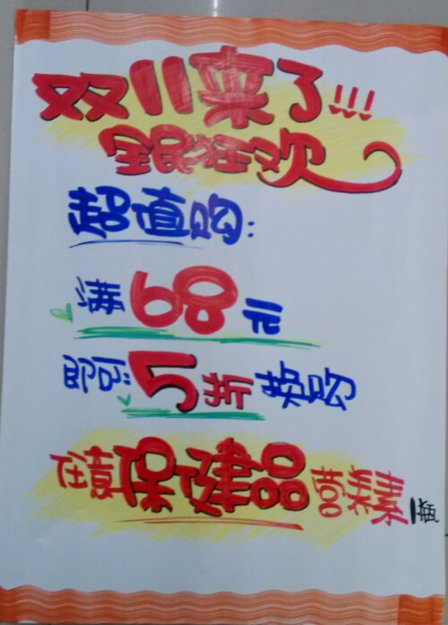 双11来了!!!
全民狂欢
超值购:
满68元
即可5折换购
任意保健品营养素1瓶